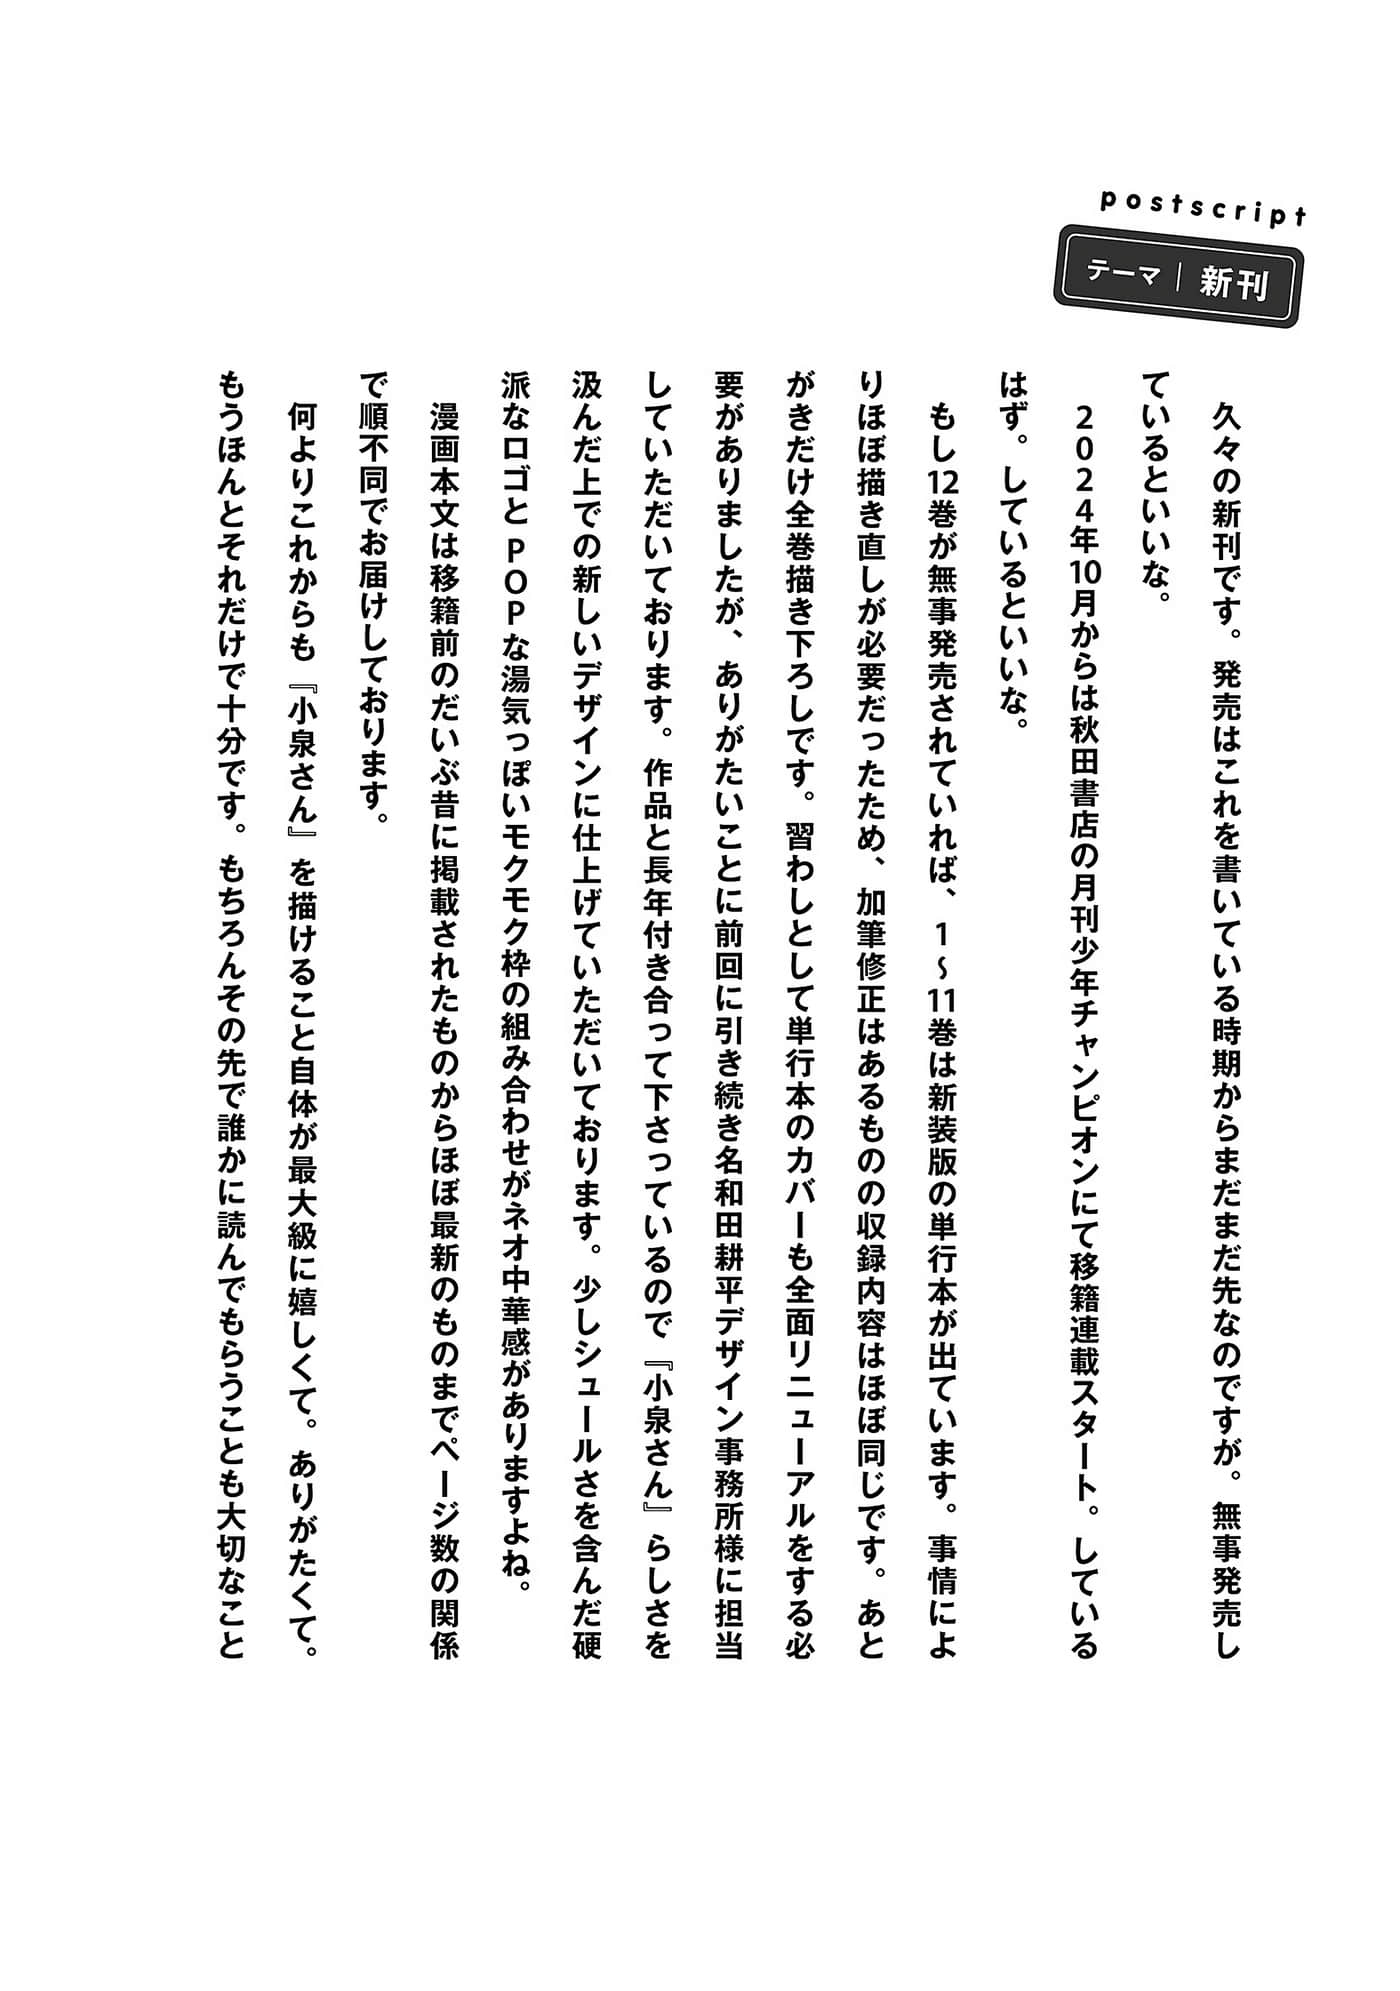 postscript
テーマ｜新刊
　久々の新刊です。発売はこれを書いている時期からまだまだ先なのですが。無事発売し
ているといいな。
　2024年10月からは秋田書店の月刊少年チャンピオンにて移籍連載スタート。している
はず。しているといいな。
　もし12巻が無事発売されていれば、1～11巻は新装版の単行本が出ています。事情によ
りほぼ描き直しが必要だったため、加筆修正はあるものの収録内容はほぼ同じです。あと
がきだけ全巻描き下ろしです。習わしとして単行本のカバーも全面リニューアルをする必
要がありましたが、ありがたいことに前回に引き続き名和田耕平デザイン事務所様に担当
していただいております。作品と長年付き合って下さっているので『小泉さん』らしさを
汲んだ上での新しいデザインに仕上げていただいております。少しシュールさを含んだ硬
派なロゴとPOPな湯気っぽいモクモク枠の組み合わせがネオ中華感がありますよね。
　漫画本文は移籍前のだいぶ昔に掲載されたものからほぼ最新のものまでページ数の関係
で順不同でお届けしております。
　何よりこれからも『小泉さん』を描けること自体が最大級に嬉しくて。ありがたくて。
もうほんとそれだけで十分です。もちろんその先で誰かに読んでもらうことも大切なこと